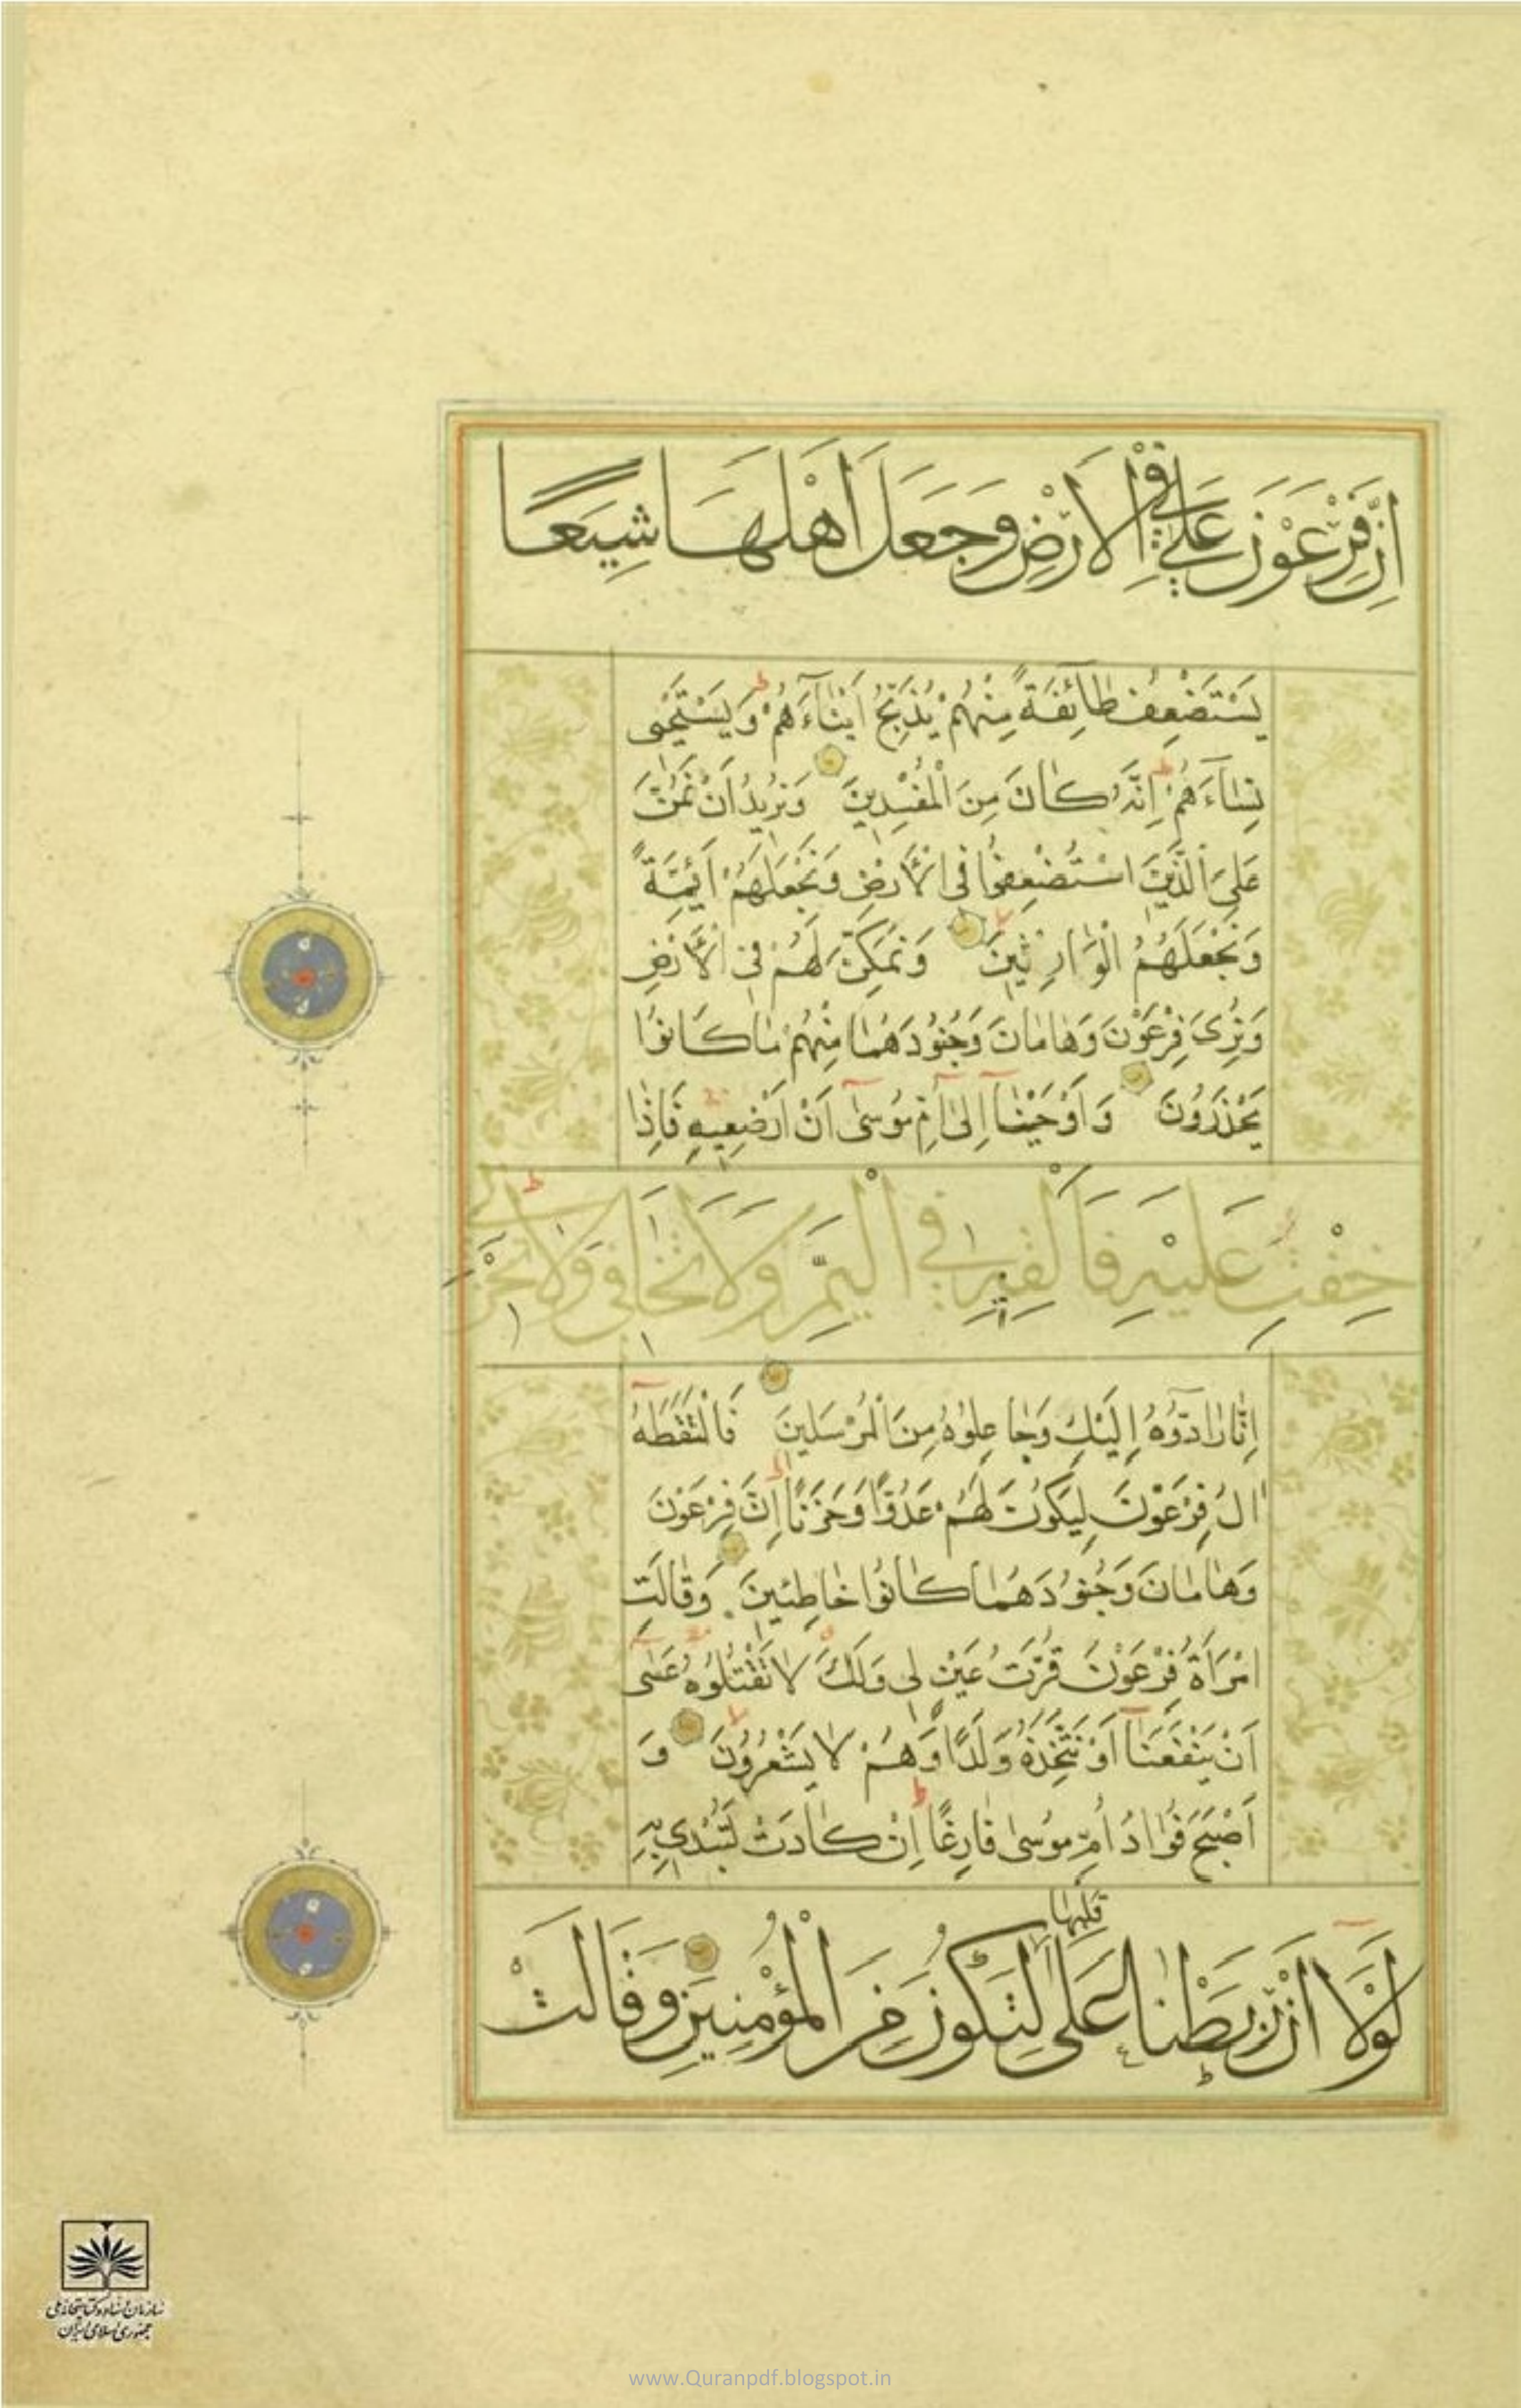 اِنَّ فِرْعَوْنَ عَلَا فِي الْاَرْضِ وَجَعَلَ اَهْلَهَا شِيَعًا
يَسْتَضْعِفُ طَائِفَةً مِنْهُمْ يُذَبِّحُ اَبْنَاءَهُمْ وَيَسْتَحْيِى
نِسَاءَهُمْ اِنَّهُ كَانَ مِنَ الْمُفْسِدِينَ وَنُرِيدُ اَنْ نَمُنَّ
عَلَى الَّذِينَ اسْتُضْعِفُوا فِى الْاَرْضِ وَنَجْعَلَهُمْ اَئِمَّةً
وَنَجْعَلَهُمُ الْوَارِثِينَ وَنُمَكِّنَ لَهُمْ فِى الْاَرْضِ
وَنُرِىَ فِرْعَوْنَ وَهَامَانَ وَجُنُودَهُمَا مِنْهُمْ مَا كَانُوا
يَحْذَرُونَ وَاَوْحَيْنَا اِلٰى اُمِّ مُوسٰى اَنْ اَرْضِعِيهِ فَاِذَا
خِفْتِ عَلَيْهِ فَاَلْقِيهِ فِي الْيَمِّ وَلَا تَخَافِي وَلَا تَحْزَنِي
اِنَّا رَادُّوهُ اِلَيْكِ وَجَاعِلُوهُ مِنَ الْمُرْسَلِينَ فَالْتَقَطَهُ
اٰلُ فِرْعَوْنَ لِيَكُونَ لَهُمْ عَدُوًّا وَحَزَنًا اِنَّ فِرْعَوْنَ
وَهَامَانَ وَجُنُودَهُمَا كَانُوا خَاطِئِينَ وَقَالَتِ
امْرَاَةُ فِرْعَوْنَ قُرَّتُ عَيْنٍ لِى وَلَكَ لَا تَقْتُلُوهُ عَسٰى
اَنْ يَنْفَعَنَا اَوْ نَتَّخِذَهُ وَلَدًا وَهُمْ لَا يَشْعُرُونَ وَ
اَصْبَحَ فُؤَادُ اُمِّ مُوسٰى فَارِغًا اِنْ كَادَتْ لَتُبْدِى بِهِ
قَلْبِهَا
لَوْلَا اَنْ رَبَطْنَا عَلٰى لِتَكُونَ مِنَ الْمُؤْمِنِينَ وَقَالَتْ
سازمان اسناد و کتابخانه ملی
جمهوری اسلامی ایران
www.Quranpdf.blogspot.in